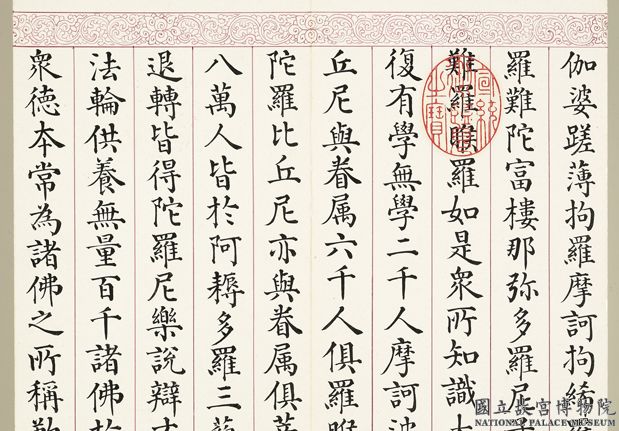 伽婆蹉薄拘羅摩訶拘絺羅
羅難陀富樓那弥多羅尼
難羅睺羅如是衆所知識大
復有學無學二千人摩訶波
丘尼與眷属六千人俱羅睺
陀羅比丘尼亦與眷属俱菩
八萬人皆於阿耨多羅三藐
退轉皆得陀羅尼樂說辯才
法輪供養無量百千諸佛於
衆德夲常為諸佛之所稱歎
宣統
之寶
國立故宮博物院
NATIONAL PALACE MUSEUM